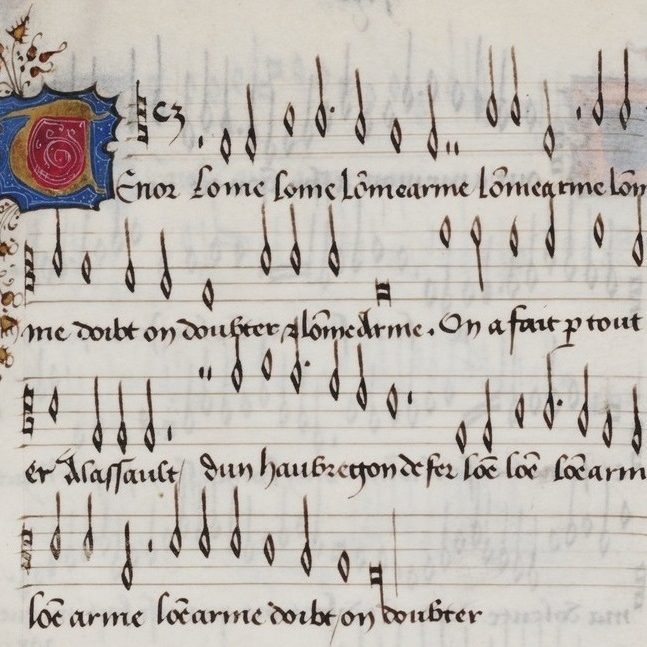 Tenor Lome lome lōmearme lōmearme lōm
me doibt on doubter lōme Arme. On a fait p tout
et Alassault dun haubregon de fer lōe lōe lōe arm
lōe arme lōe arme doibt on doubter